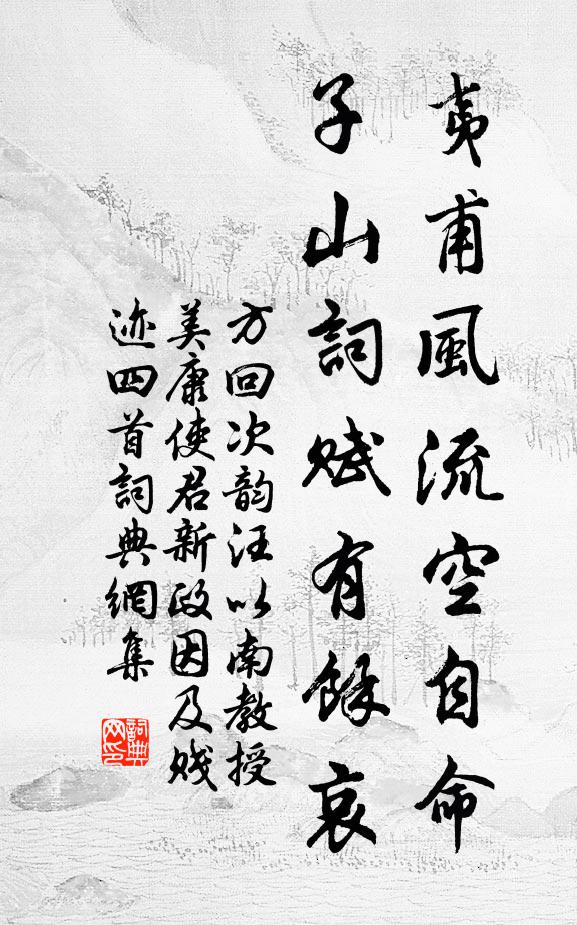 夷甫風流空自命
子山詞賦有餘哀
方回次韵汪以南教授
美康使君新政因及賤
迹四首詞典網集
詞典
网印